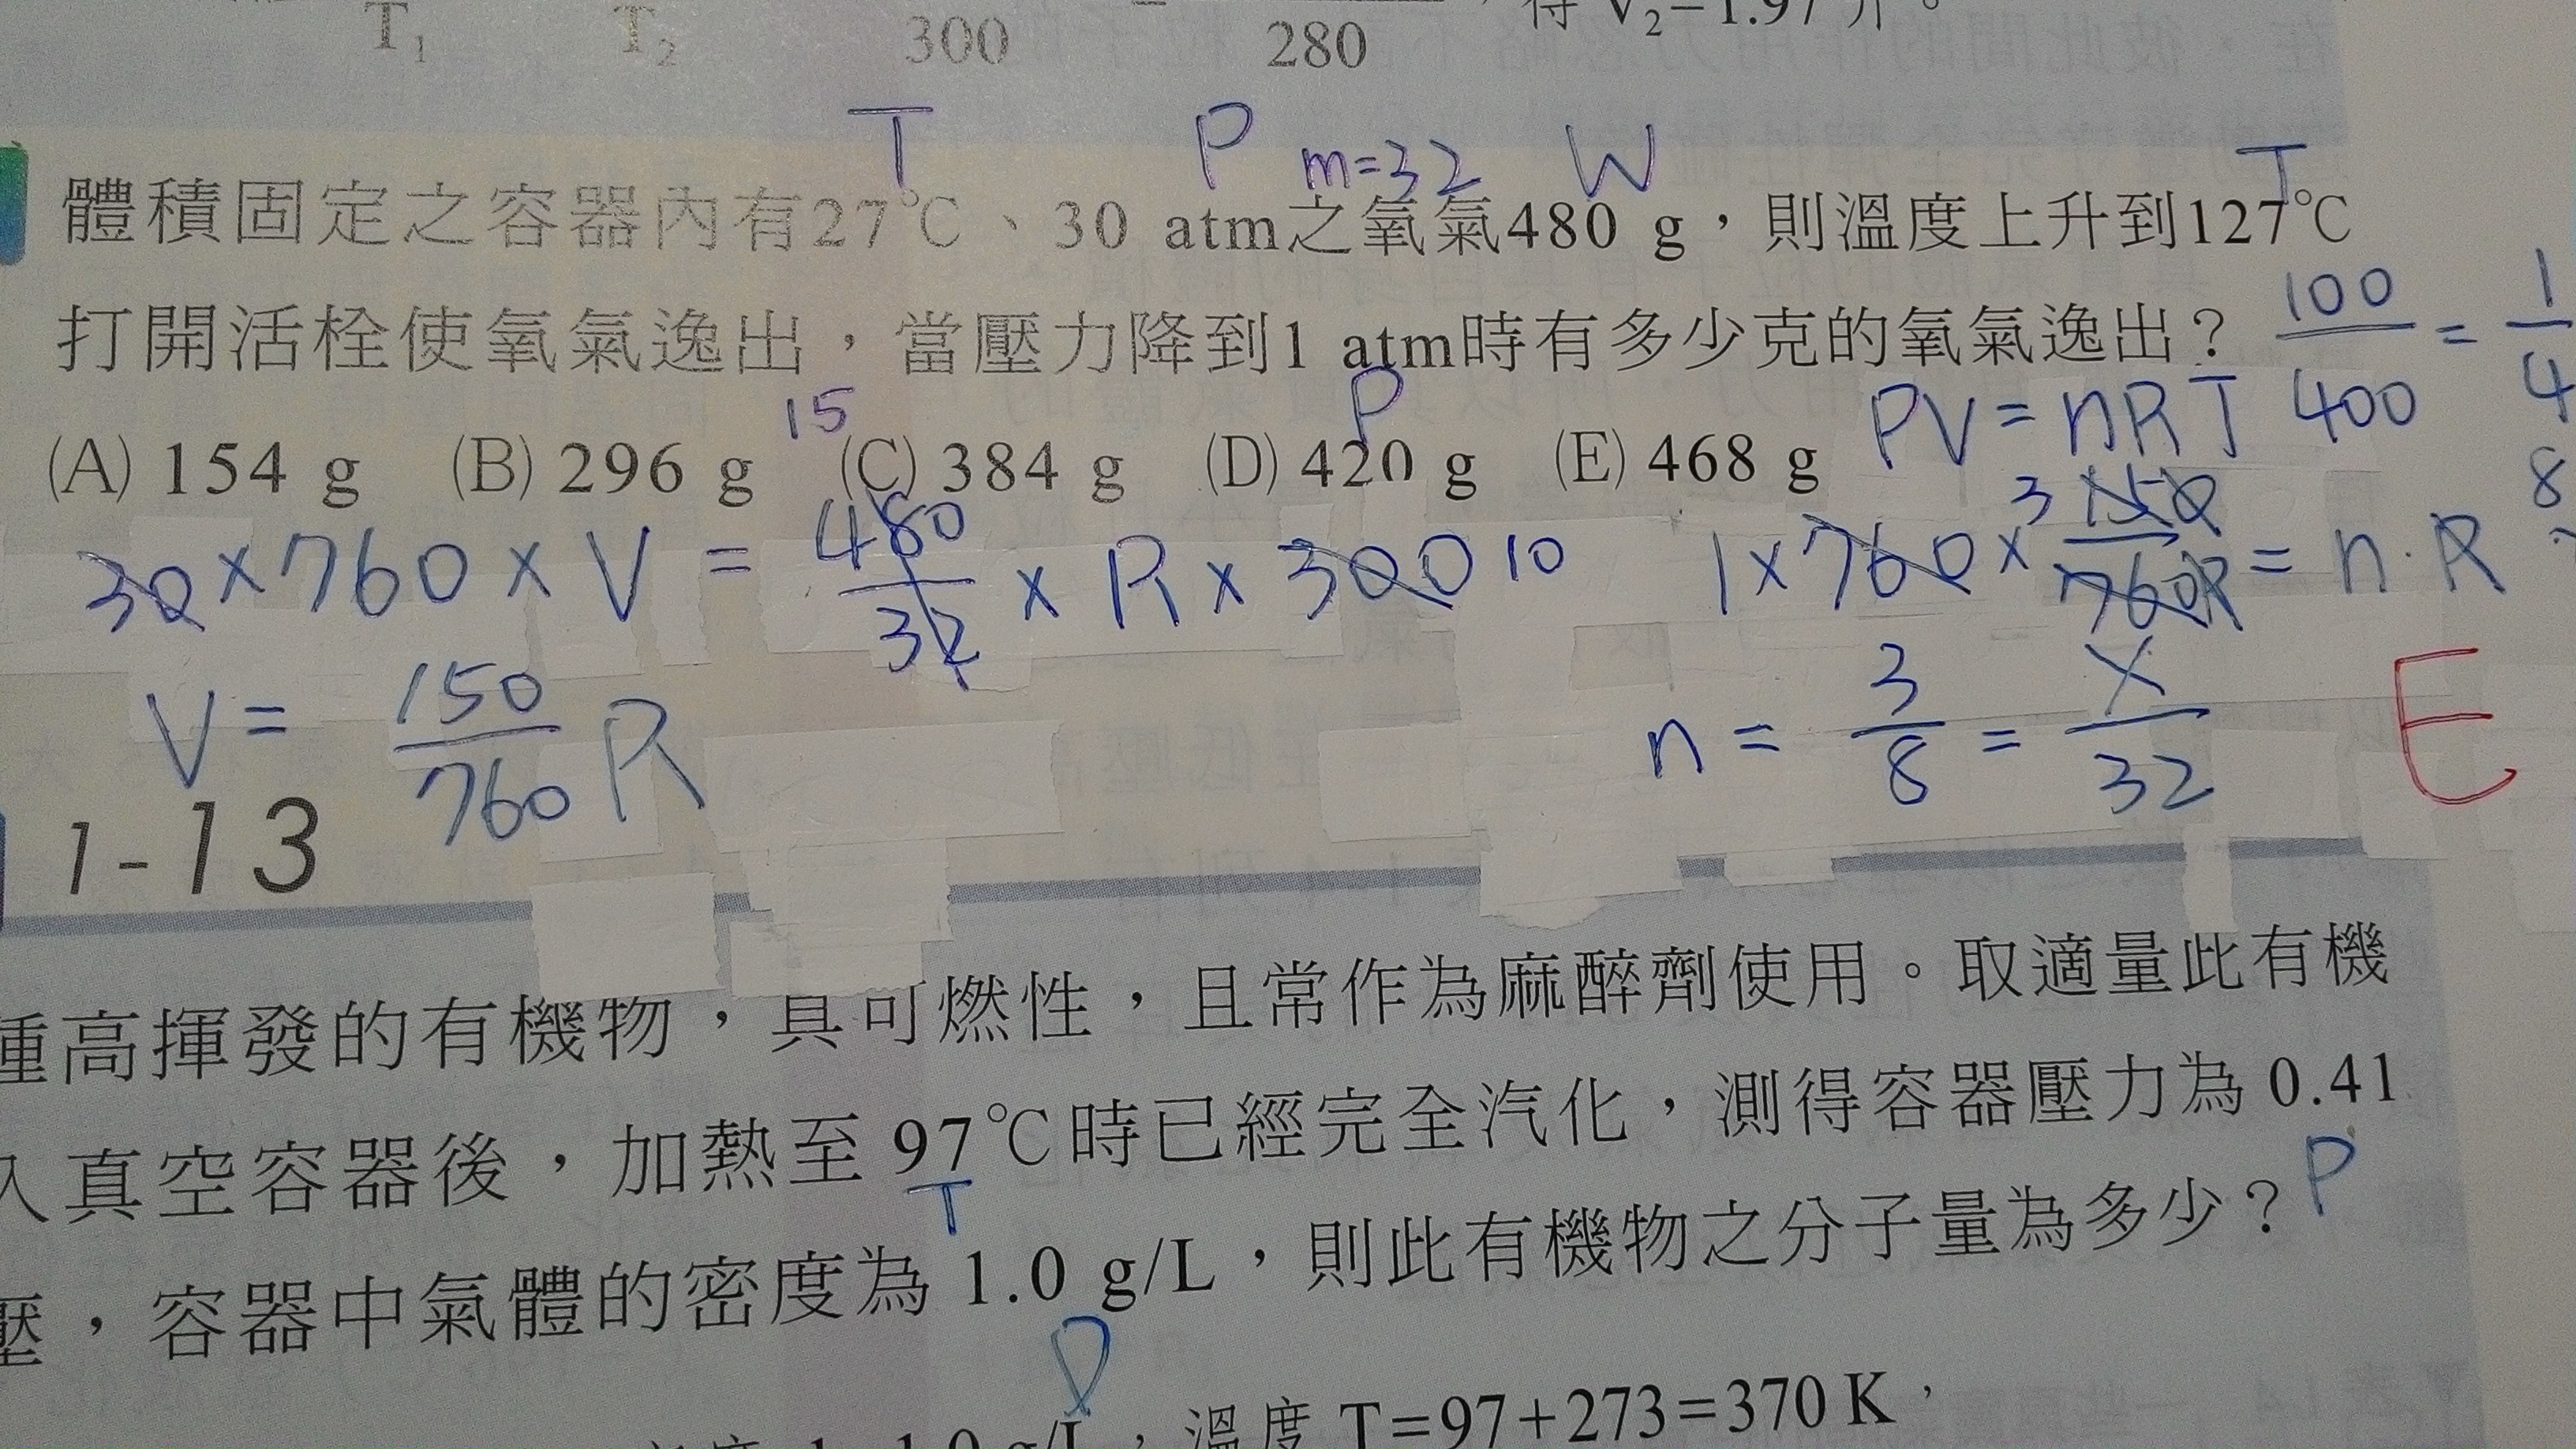 T₁ T₂ 300 280 得 V₂=1.97 升。
T P m=32 W T
體積固定之容器內有27℃、30 atm之氧氣480 g，則溫度上升到127℃
打開活栓使氧氣逸出，當壓力降到1 atm時有多少克的氧氣逸出？
100/400 = 1/4
15 P PV=nRT
(A) 154 g (B) 296 g (C) 384 g (D) 420 g (E) 468 g
8
30×760×V = 480/32 × R × 300 10
1×760× 3 150/760R = n·R
V = 150/760 R
n = 3/8 = X/32
E
1-13
種高揮發的有機物，具可燃性，且常作為麻醉劑使用。取適量此有機
入真空容器後，加熱至 97℃時已經完全汽化，測得容器壓力為 0.41
T P
壓，容器中氣體的密度為 1.0 g/L，則此有機物之分子量為多少？
D
1.0 g/L，溫度 T=97+273=370 K，